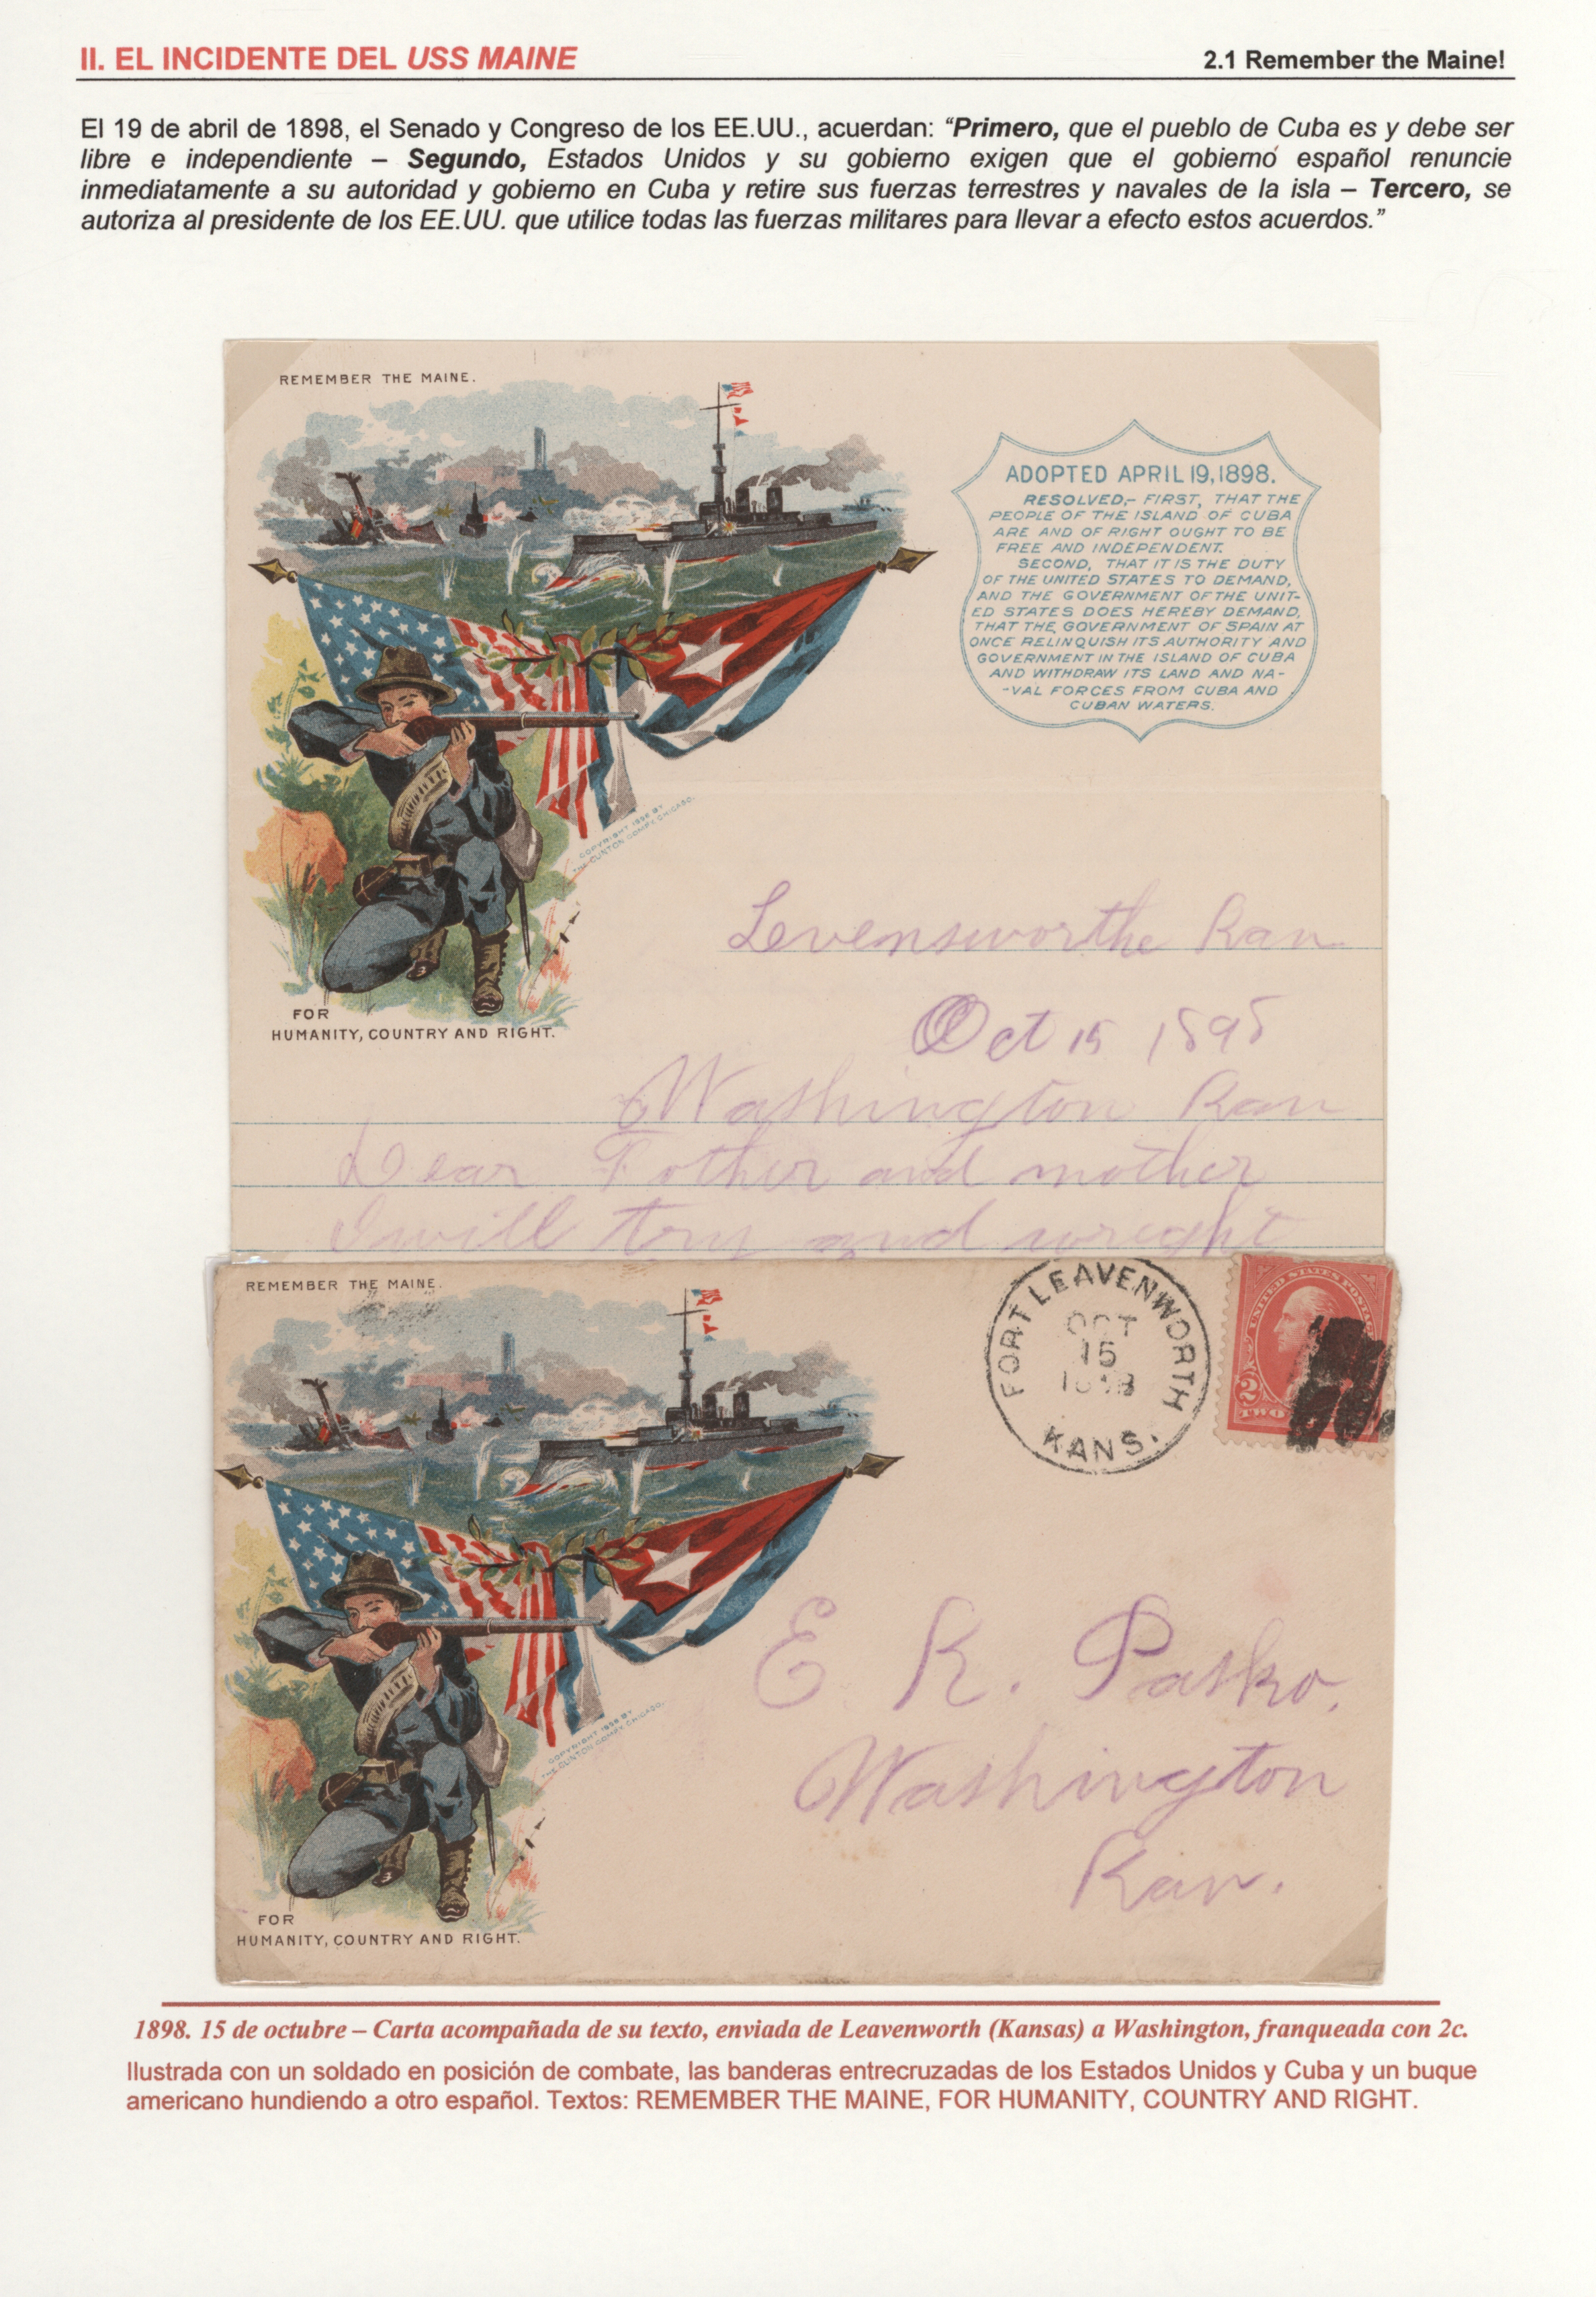 II. EL INCIDENTE DEL USS MAINE
2.1 Remember the Maine!
El 19 de abril de 1898, el Senado y Congreso de los EE.UU., acuerdan: “Primero, que el pueblo de Cuba es y debe ser
libre e independiente – Segundo, Estados Unidos y su gobierno exigen que el gobierno español renuncie
inmediatamente a su autoridad y gobierno en Cuba y retire sus fuerzas terrestres y navales de la isla – Tercero, se
autoriza al presidente de los EE.UU. que utilice todas las fuerzas militares para llevar a efecto estos acuerdos.”
REMEMBER THE MAINE.
ADOPTED APRIL 19, 1898.
RESOLVED,- FIRST, THAT THE
PEOPLE OF THE ISLAND OF CUBA
ARE AND OF RIGHT OUGHT TO BE
FREE AND INDEPENDENT.
SECOND, THAT IT IS THE DUTY
OF THE UNITED STATES TO DEMAND,
AND THE GOVERNMENT OF THE UNIT-
ED STATES DOES HEREBY DEMAND,
THAT THE GOVERNMENT OF SPAIN AT
ONCE RELINQUISH ITS AUTHORITY AND
GOVERNMENT IN THE ISLAND OF CUBA
AND WITHDRAW ITS LAND AND NA-
-VAL FORCES FROM CUBA AND
CUBAN WATERS.
COPYRIGHT 1898 BY
THE CLINTON COMPY. CHICAGO.
FOR
HUMANITY, COUNTRY AND RIGHT.
Levensworthe Kan
Oct 15 1898
Washington Kan
Dear Father and mother
I will try and wreght
REMEMBER THE MAINE.
FORT LEAVENWORTH
OCT
15
1898
KANS.
UNITED STATES POSTAGE
2
TWO
COPYRIGHT 1898 BY
THE CLINTON COMPY. CHICAGO.
E. K. Pasko.
Washington
Kan.
FOR
HUMANITY, COUNTRY AND RIGHT.
1898. 15 de octubre – Carta acompañada de su texto, enviada de Leavenworth (Kansas) a Washington, franqueada con 2c.
Ilustrada con un soldado en posición de combate, las banderas entrecruzadas de los Estados Unidos y Cuba y un buque
americano hundiendo a otro español. Textos: REMEMBER THE MAINE, FOR HUMANITY, COUNTRY AND RIGHT.